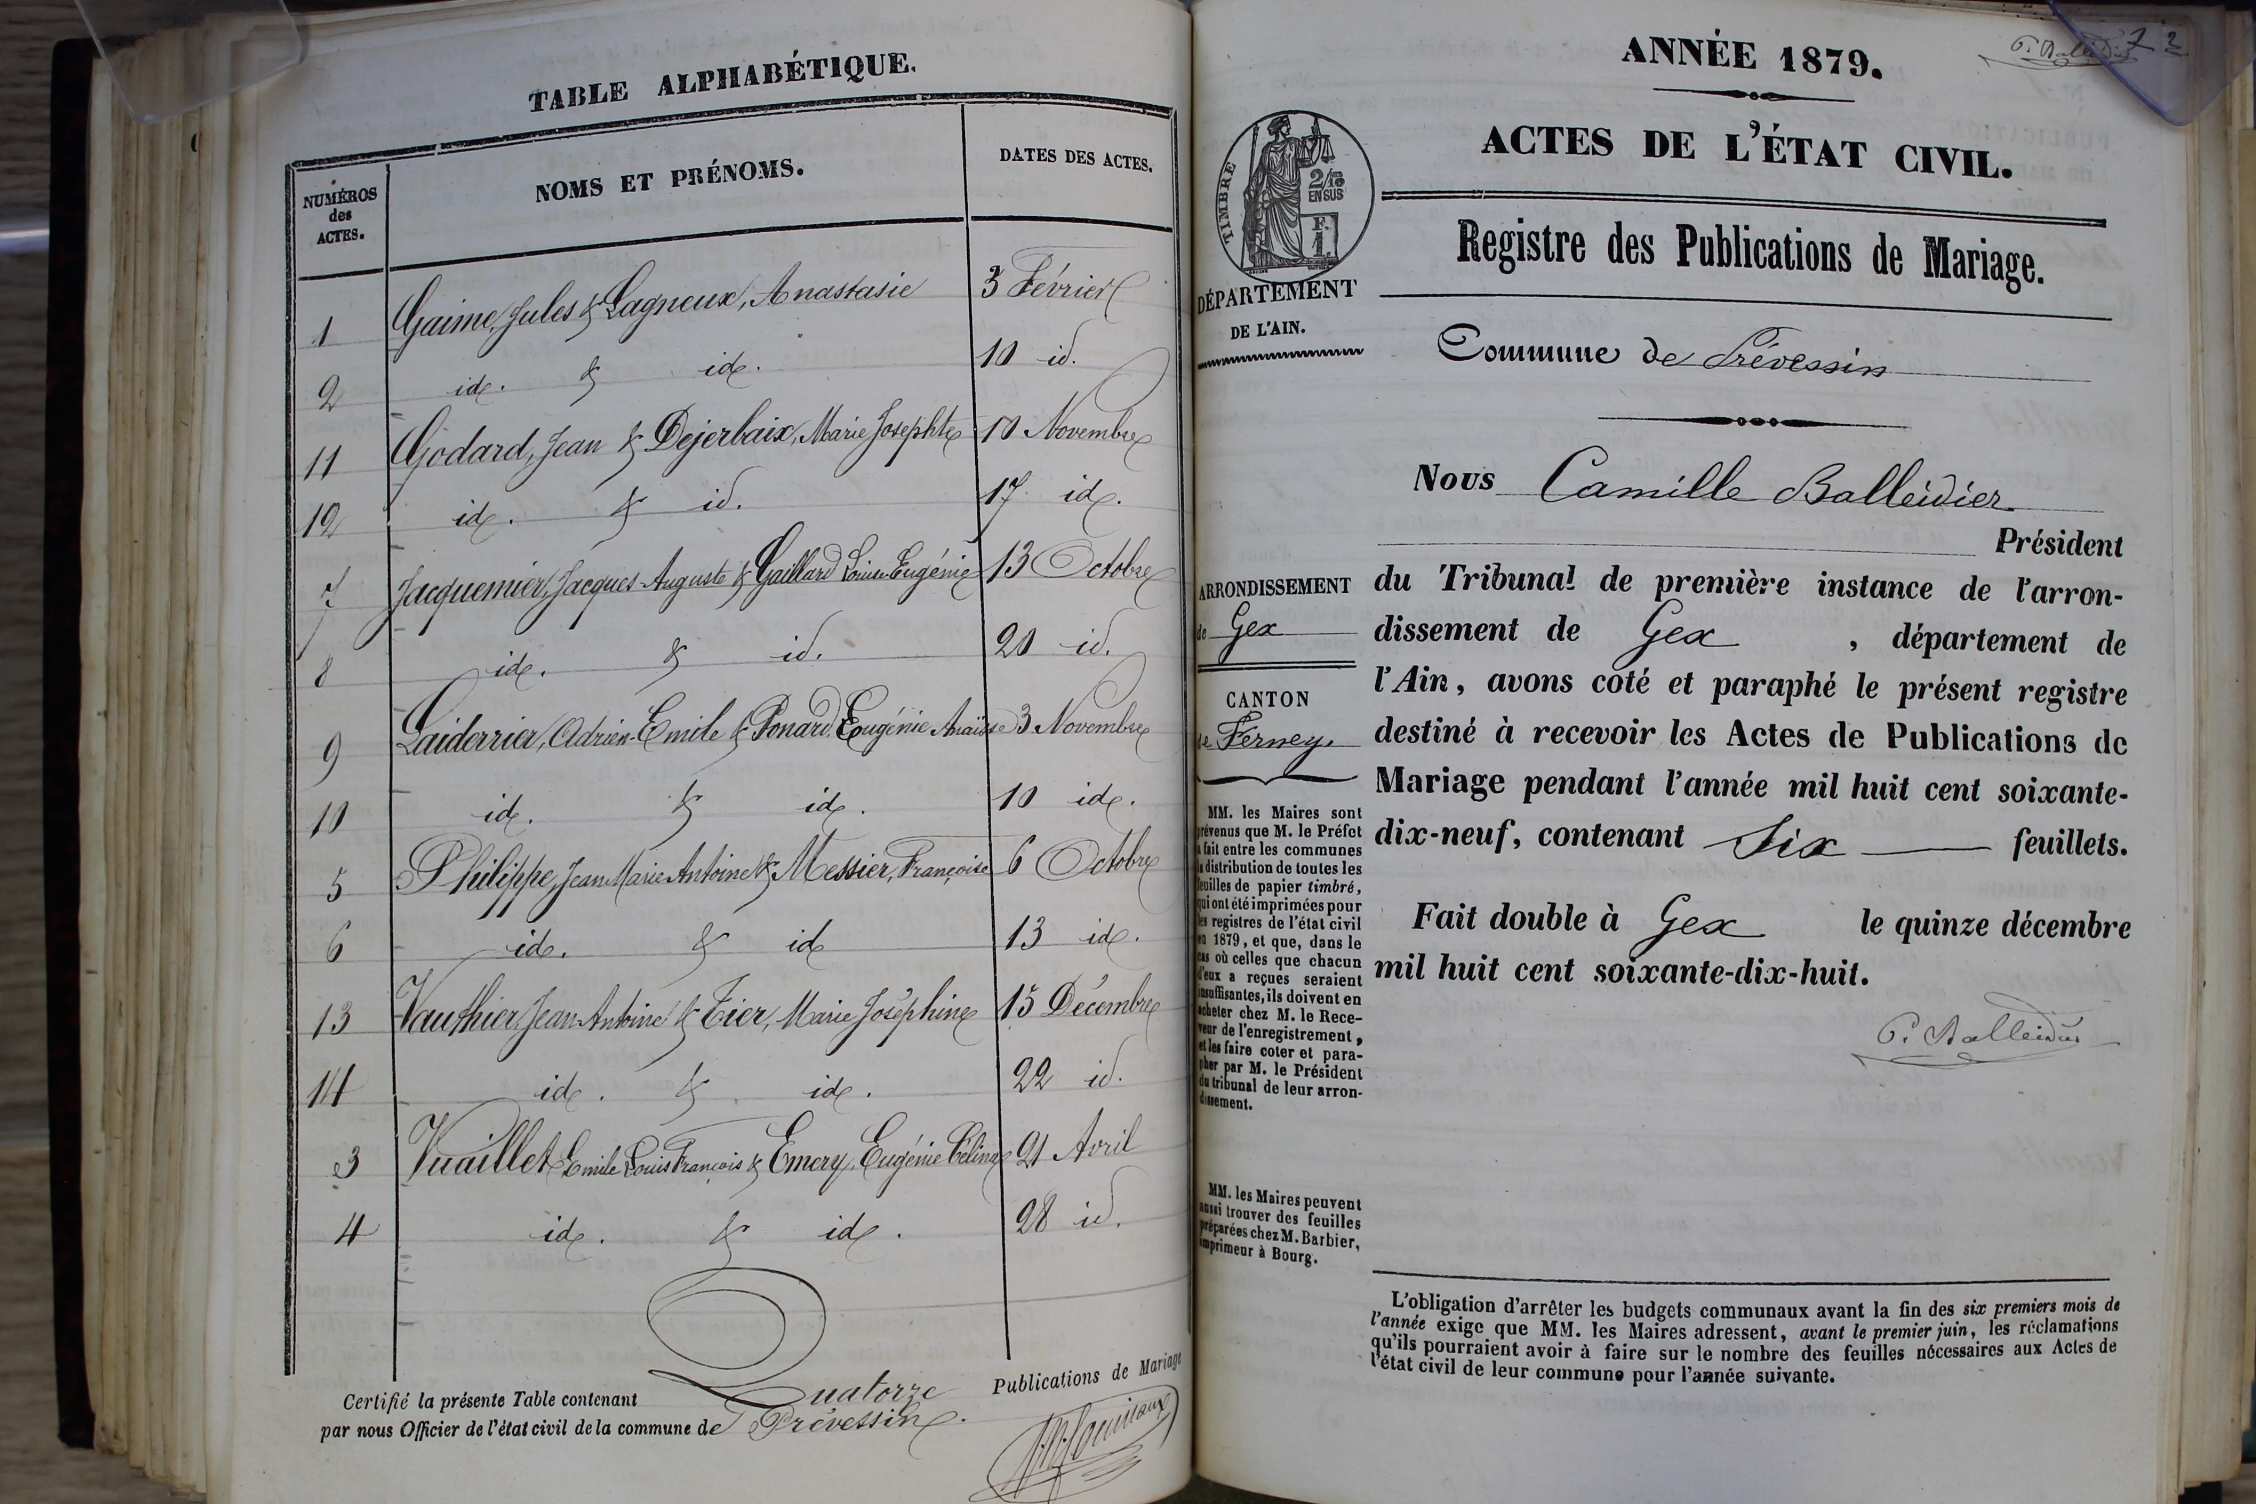 TABLE ALPHABÉTIQUE.
NUMÉROS
des
ACTES.
NOMS ET PRÉNOMS.
DATES DES ACTES.
1 Gaime, Jules & Lagneux, Anastasie 3 Février
2 id. & id. 10 id.
11 Godard, Jean & Dejerbaix, Marie Josephte 10 Novembre
12 id. & id. 17 id.
7 Jacquemier, Jacques-Auguste & Gaillard Louise-Eugénie 13 Octobre
8 id. & id. 20 id.
9 Laiderrier, Adrien-Emile & Ponard Eugénie Anaïse 3 Novembre
10 id. & id. 10 id.
5 Philippe, Jean Marie Antoine & Messier, Françoise 6 Octobre
6 id. & id 13 id.
13 Vauthier, Jean-Antoine & Tier, Marie Joséphine 15 Décembre
14 id. & id. 22 id.
3 Vuaillet Emile Louis François & Emery, Eugénie Célina 21 Avril
4 id. & id. 28 id.
Certifié la présente Table contenant Quatorze Publications de Mariage
par nous Officier de l'état civil de la commune de Prévessin.
ANNÉE 1879.
ACTES DE L'ÉTAT CIVIL.
Registre des Publications de Mariage.
TIMBRE
2/10
EN SUS
F.
1.
DÉPARTEMENT
DE L'AIN.
Commune de Prévessin
Nous Camille Balleidier
Président
du Tribunal de première instance de l'arron-
dissement de Gex , département de
l'Ain, avons coté et paraphé le présent registre
destiné à recevoir les Actes de Publications de
Mariage pendant l'année mil huit cent soixante-
dix-neuf, contenant Six feuillets.
Fait double à Gex le quinze décembre
mil huit cent soixante-dix-huit.
C. Balleidier
ARRONDISSEMENT
de Gex
CANTON
de Ferney
MM. les Maires sont
prévenus que M. le Préfet
a fait entre les communes
la distribution de toutes les
feuilles de papier timbré,
qui ont été imprimées pour
les registres de l'état civil
en 1879, et que, dans le
cas où celles que chacun
d'eux a reçues seraient
insuffisantes, ils doivent en
acheter chez M. le Rece-
veur de l'enregistrement,
et les faire coter et para-
pher par M. le Président
du tribunal de leur arron-
dissement.
MM. les Maires peuvent
aussi trouver des feuilles
préparées chez M. Barbier,
imprimeur à Bourg.
L'obligation d'arrêter les budgets communaux avant la fin des six premiers mois de
l'année exige que MM. les Maires adressent, avant le premier juin, les réclamations
qu'ils pourraient avoir à faire sur le nombre des feuilles nécessaires aux Actes de
l'état civil de leur commune pour l'année suivante.